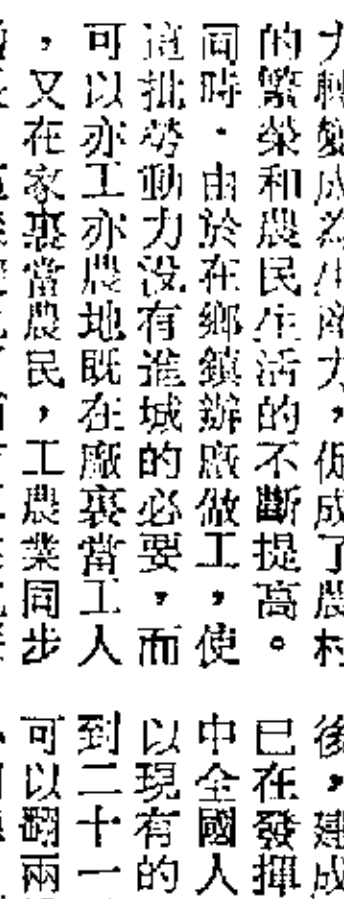 力轉變成為生產力,促成了農村
的繁榮和農民生活的不斷提高。
同時,由於在鄉鎮辦廠做工,使
這批勞動力没有進城的必要,而
可以亦工亦農地既在廠裏當工人
,又在家裏當農民,工農業同步
後,建成
已在發揮
中全國人
以現有的
到二十一
可以翻兩